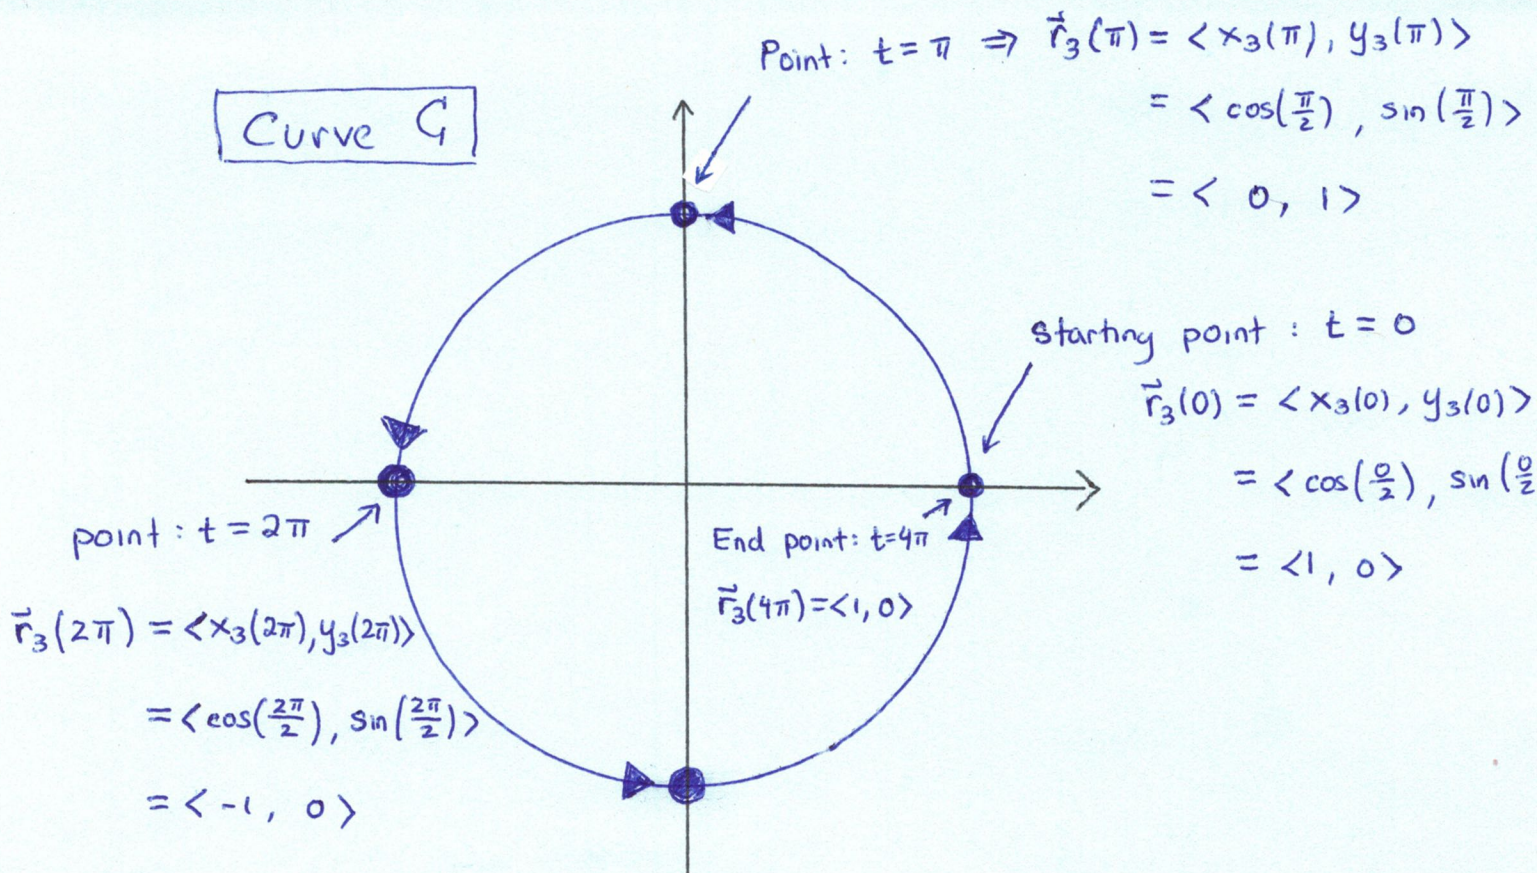 Point: t = π ⇒ r⃗₃(π) = <x₃(π), y₃(π)>
= <cos(π/2), sin(π/2)>
= <0, 1>
Curve G
Starting point: t = 0
r⃗₃(0) = <x₃(0), y₃(0)>
= <cos(0/2), sin(0/2
= <1, 0>
point: t = 2π
r⃗₃(2π) = <x₃(2π), y₃(2π)>
= <cos(2π/2), sin(2π/2)>
= <-1, 0>
End point: t=4π
r⃗₃(4π) = <1, 0>